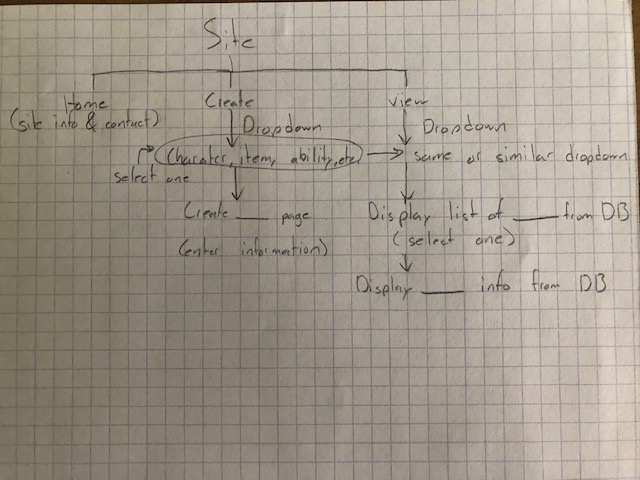 Site
Home
(site info & contact)
Create
Dropdown
(Character, item, ability, etc)
select one
Create ___ page
(enter information)
View
Dropdown
same or similar dropdown
Display list of ___ from DB
(select one)
Display ___ info from DB